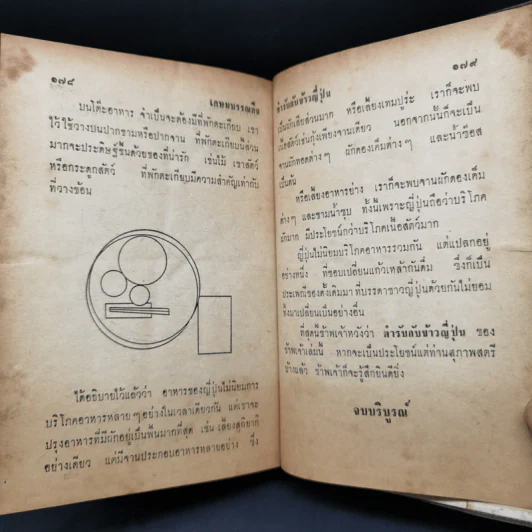 ๑๗๘
เกษมบรรณกิจ
บนโต๊ะอาหาร จำเป็นจะต้องมีที่พักตะเกียบ เขา
ไว้ใช้วางบนปากชามหรือปากจาน ที่พักตะเกียบนี้ส่วน
มากจะประดิษฐ์ขึ้นด้วยของที่น่ารัก เช่นไม้ เขาสัตว์
หรือกระดูกสัตว์ ที่พักตะเกียบมีความสำคัญเท่ากับ
ที่วางช้อน
ได้อธิบายไว้แล้วว่า อาหารของญี่ปุ่นไม่นิยมการ
บริโภคอาหารหลาย ๆ อย่างในเวลาเดียวกัน แต่เขาจะ
ปรุงอาหารที่มีผักอยู่เป็นพื้นมากที่สุด เช่น เลี้ยงสุกิยากี
อย่างเดียว แต่มีจานประกอบอาหารหลายอย่าง ซึ่ง
๑๗๙
ตำรับกับข้าวญี่ปุ่น
เป็นผักเสียส่วนมาก หรือเลี้ยงเทมปุระ เราก็จะพบ
เนื้อสัตว์เช่นกุ้งเพียงจานเดียว นอกจากนั้นก็จะเป็น
จานผักทอดต่าง ๆ ผักดองเค็มต่าง ๆ และน้ำซ้อส
เป็นต้น
หรือเลี้ยงอาหารย่าง เราก็จะพบจานผักดองเค็ม
ต่าง ๆ และชามน้ำซุบ ทั้งนี้เพราะญี่ปุ่นถือว่าบริโภค
ผักมาก มีประโยชน์กว่าบริโภคเนื้อสัตว์มาก
ญี่ปุ่นไม่นิยมบริโภคอาหารรวมกัน แต่แปลกอยู่
อย่างหนึ่ง ที่ชอบเปลี่ยนแก้วเหล้ากันดื่ม ซึ่งก็เป็น
ประเพณีของดั้งเดิมมา ที่บรรดาชาวญี่ปุ่นด้วยกันไม่ยอม
ทิ้งมาเปลี่ยนเป็นอย่างอื่น
ที่สุดนี้ข้าพเจ้าหวังว่า ตำรับกับข้าวญี่ปุ่น ของ
ข้าพเจ้าเล่มนี้ หากจะเป็นประโยชน์แต่ท่านสุภาพสตรี
บ้างแล้ว ข้าพเจ้าก็จะรู้สึกยินดียิ่ง
จบบริบูรณ์